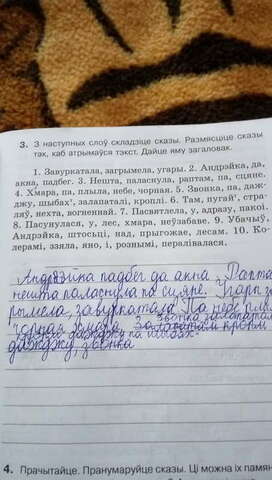 3. З наступных слоў складзіце сказы. Размясціце сказы
так, каб атрымаўся тэкст. Дайце яму загаловак.
1. Завуркатала, загрымела, угары. 2. Андрэйка, да,
акна, падбег. 3. Нешта, паласнула, раптам, па, сцяне.
4. Хмара, па, плыла, небе, чорная. 5. Звонка, па, даж-
джу, шыбах, залапаталі, кроплі. 6. Там, пугаў, стра-
ляў, нехта, вогненнай. 7. Пасвятлела, у, адразу, пакоі.
8. Пасунулася, у, лес, хмара, неўзабаве. 9. Убачыў,
Андрэйка, штосьці, над, прыгожае, лесам. 10. Ко-
лерамі, ззяла, яно, і, рознымі, пералівалася.
Андрэйка падбег да акна. Рапта
нешта паласнула па сцяне.
рымела, завуркатала. Па небе плы
чорная хмара. Звонка залапатал
кроплі
дажджу па шыбах.
дажджу, звонка
4. Прачытайце. Пранумаруйце сказы. Ці можна іх памян